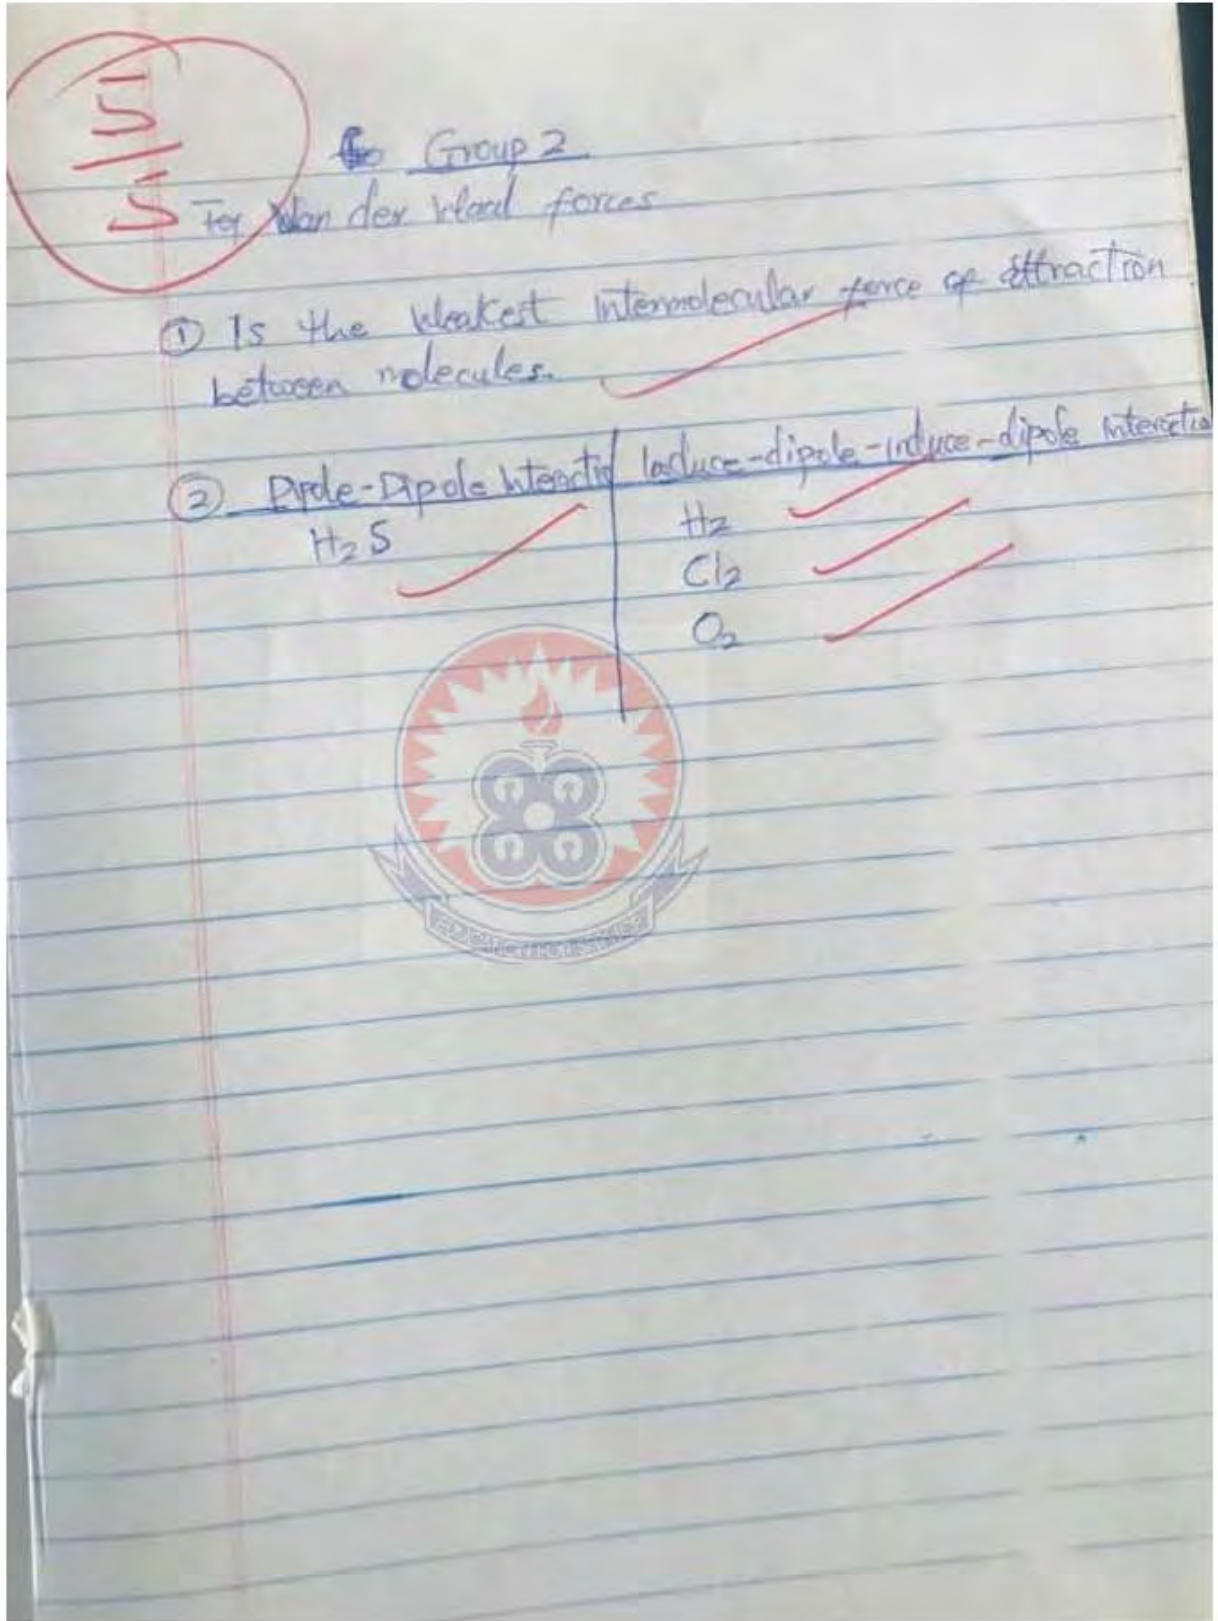 5
5
Group 2
Van der Waal forces
① Is the Weakest Intermolecular force of attraction
between molecules.
② Dipole-Dipole Interactio | Induce-dipole-induce-dipole interactio
H₂S
H₂
Cl₂
O₂